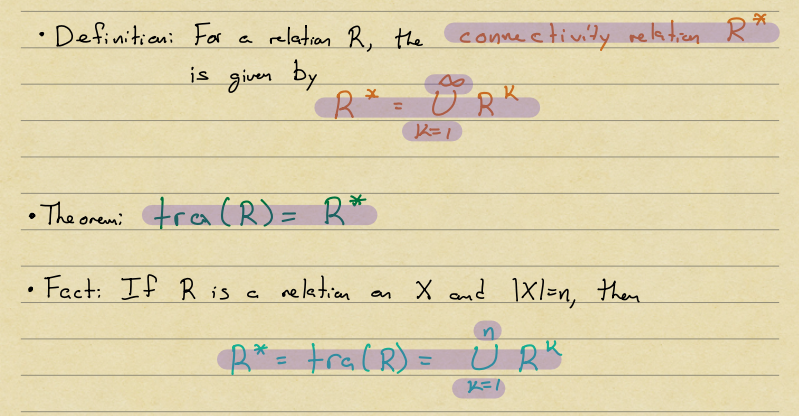 • Definition: For a relation R, the connectivity relation R*
is given by
∞
R* = ∪ R^K
K=1
• Theorem: tra(R) = R*
• Fact: If R is a relation on X and |X|=n, then
n
R* = tra(R) = ∪ R^K
K=1